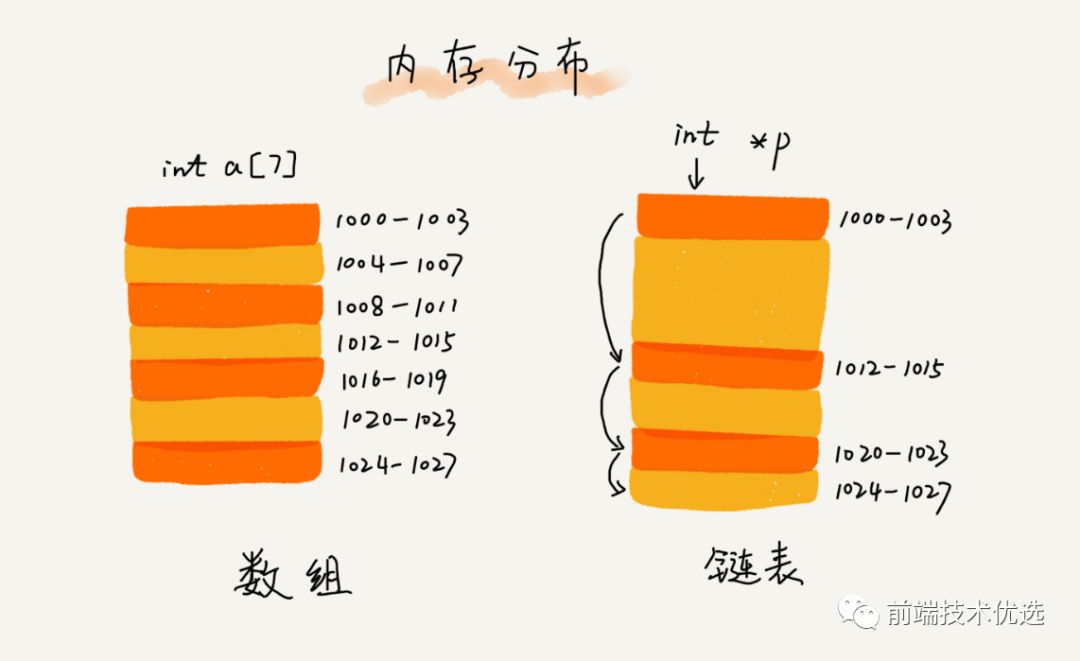 内存分布
int a[7]
1000-1003
1004-1007
1008-1011
1012-1015
1016-1019
1020-1023
1024-1027
数组
int *p
1000-1003
1012-1015
1020-1023
1024-1027
链表
前端技术优选